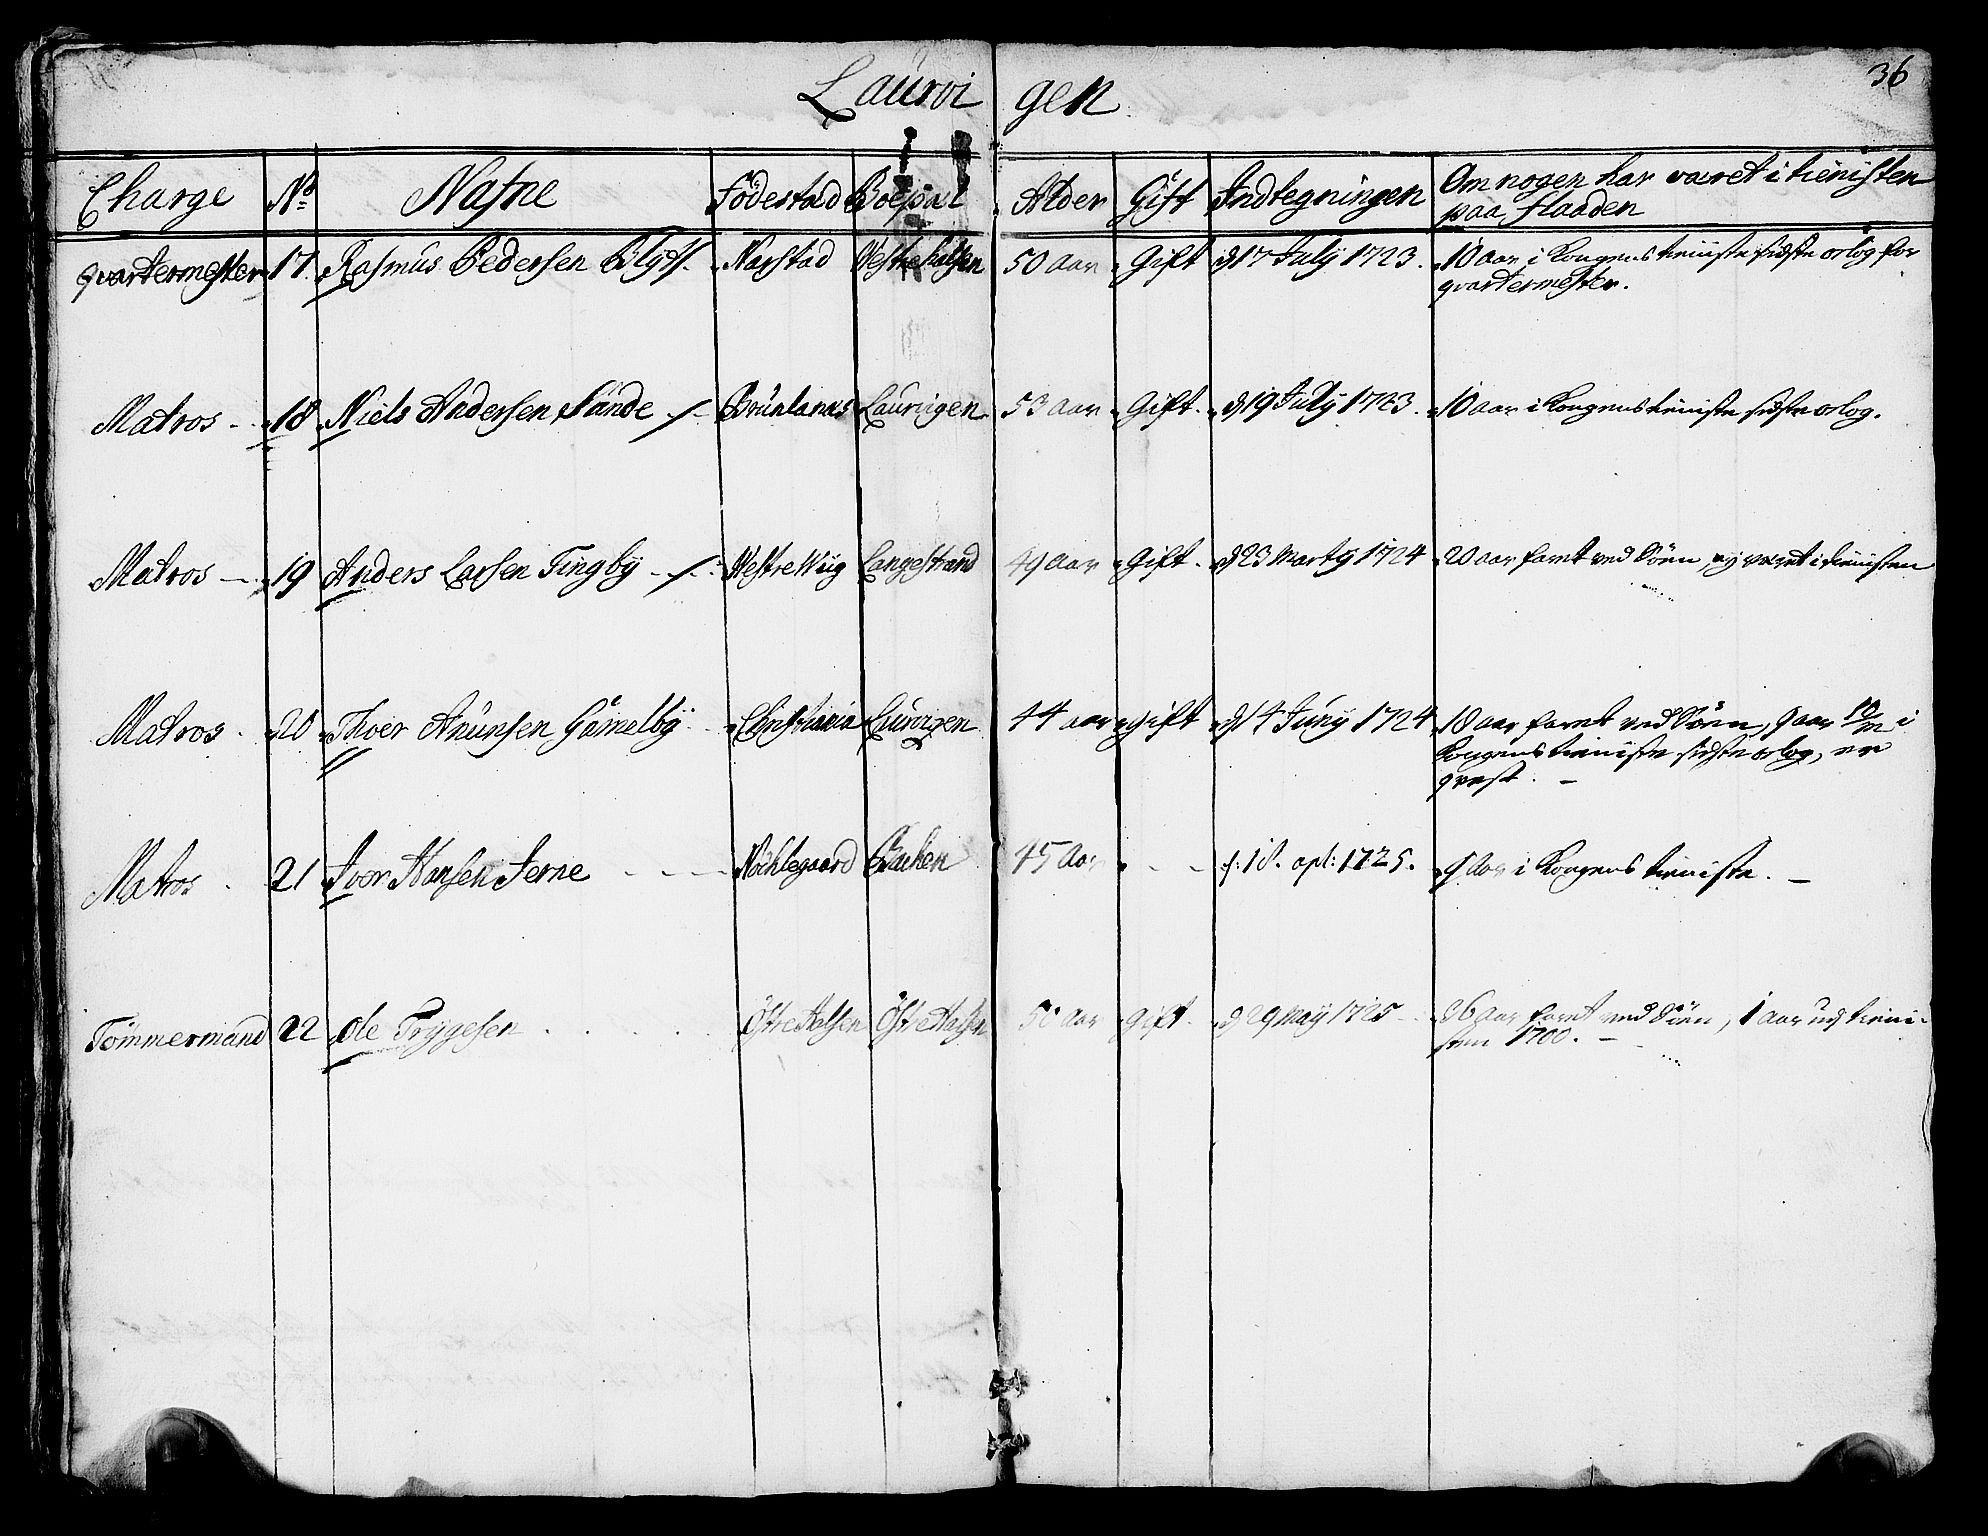 36
Laurvigen
Charge No Nafne Födestad Boepæl Alder Gift Indtegningen Om nogen har været i tienisten
paa flaaden
qvartermester 17. Rasmus Pedersen Blytt. Narstad Westrehalsen 50 aar Gift d 17 July 1723. 10 aar i Kongens tieniste sidste orlog for
qvartermester.
Matros 18 Niels Andersen Sande Brunlanes Laurvigen 53 aar Gift. d 19 July 1723. 10 aar i Kongens tieniste sidste orlog.
Matros 19 Anders Larsen Tingby Westre Wiig Langestrand 49 aar Gift. d 23 Marty 1724 20 aar faret ved Söen, ej været i tienisten
Matros 20 Thoer Anunsen Gamelby Christiania Laurvigen 44 aar gift d 14 Juny 1724 18 aar faret ved Söen, 9 aar 10/m i
Kongens tieniste sidste orlog, er
qvest.
Matros 21 Iver Hansen Ierne Nöchlegaard Bachen 45 aar d: 18. apl: 1725. 9 aar i Kongens tieniste.
Tömmermand 22 Ole Trygesen Östre Halsen Östre Halsen 50 aar gift d 29 May 1725 36 aar faret ved Söen, 1 aar ud tieni-
sten 1700.